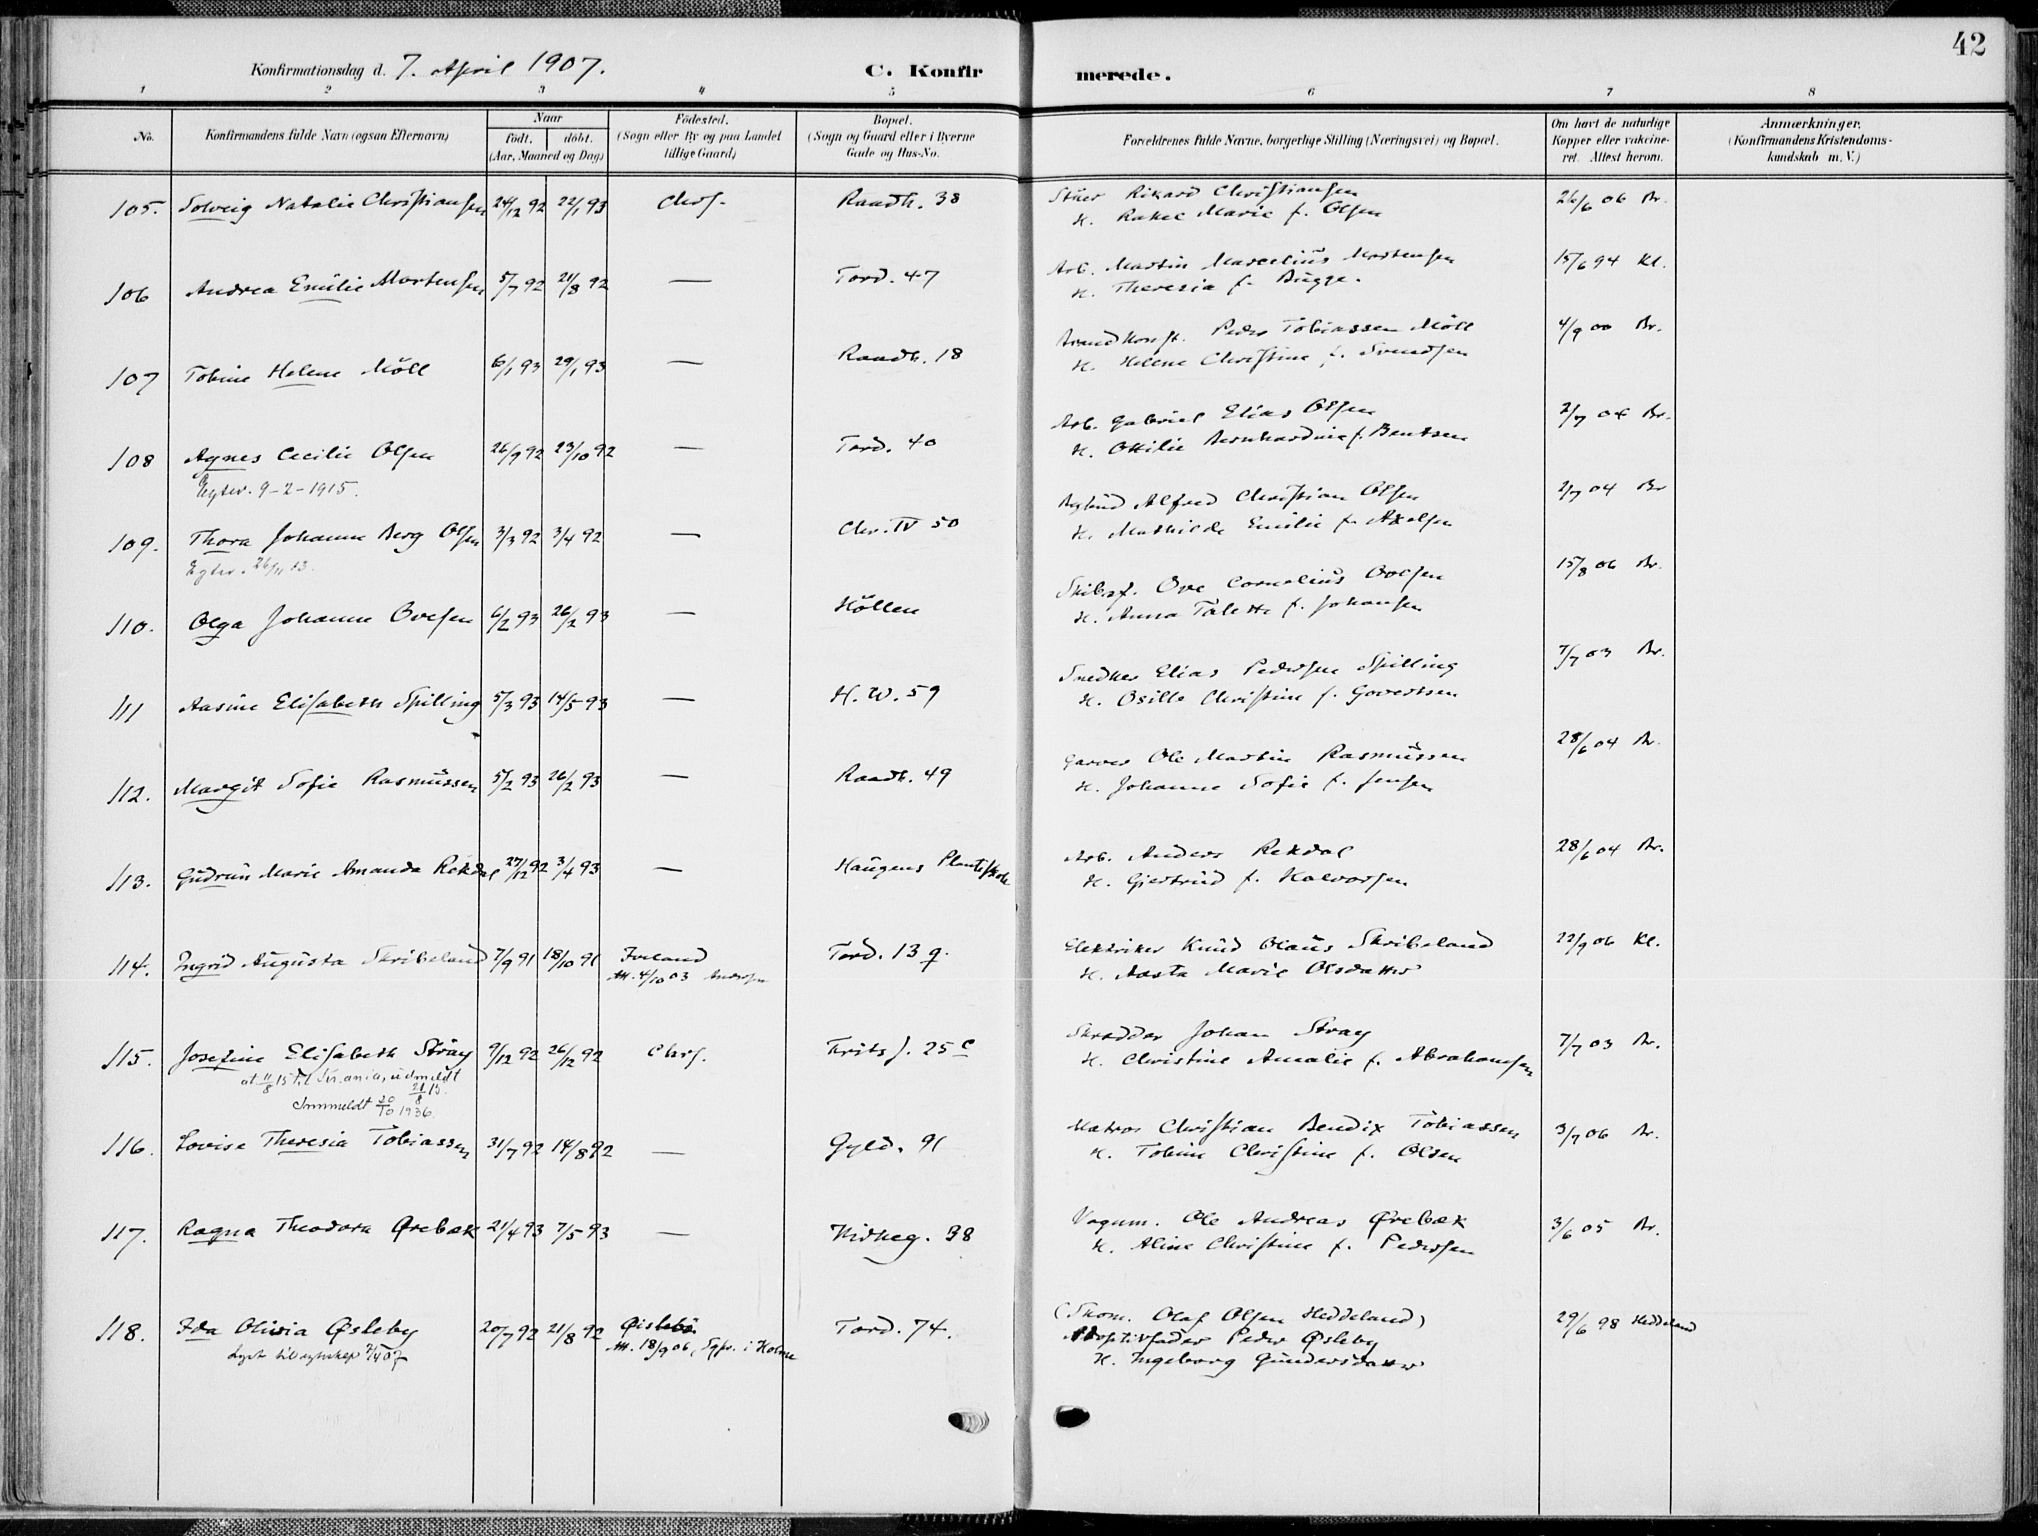 42
Konfirmationsdag d. 7. April 1907. C. Konfirmerede.
1 2 3 4 5 6 7 8
No. Konfirmandens fulde Navn (ogsaa Efternavn) Naar Født. døbt. (Aar, Maaned og Dag) Fødested. (Sogn eller By og paa Landet tillige Gaard) Bopæl. (Sogn og Gaard eller i Byerne Gade og Hus-No. Forældrenes fulde Navne, borgerlige Stilling (Næringsvei) og Bopæl. Om havt de naturlige Kopper eller vakcineret. Attest herom. Anmærkninger. (Konfirmandens Kristendomskundskab m. V.)
105. Solveig Natalie Christiansen 24/12 92 22/1 93 Chrs. Raadh. 38 Stuer Rikard Christiansen 26/6 06 Br.
H. Rakel Marie f. Olsen
106 Andrea Emilie Mortensen 5/7 92 21/8 92 — Tord. 47 Arb. Martin Marcelius Mortensen 15/6 94 Kl.
H. Theresia f. Bugge.
107 Tobine Helene Möll 6/1 93 29/1 93 — Raadh. 18 Brandkonst. Peder Tobiassen Möll 4/9 00 Br.
H. Helene Christine f. Svendsen
108 Agnes Cecilie Olsen 26/9 92 23/10 92 — Tord. 40 Arb. Gabriel Elias Olsen 2/7 04 Br.
H. Ottilie Bernhardine f. Bentsen
Egtev. 9-2-1915.
109. Thora Johanne Berg Olsen 3/3 92 3/4 92 — Chr. IV 50 Bybud Alfred Christian Olsen 2/7 04 Br
H. Mathilde Emilie f. Axelsen
Egtev. 26/11 13.
110. Olga Johanne Ovesen 6/2 93 26/2 93 — Höllen Skibsf. Ove Cornelius Ovesen 15/8 06 Br.
H. Anna Talette f. Johansen
111 Aasine Elisabeth Spilling 5/3 93 14/5 93 — H. W. 59 Snedker Elias Pedersen Spilling 7/7 03 Br.
H. Osille Christine f. Govertsen
112. Margit Sofie Rasmussen 5/2 93 26/2 93 — Raadh. 49 Garver Ole Martin Rasmussen 28/6 04 Br.
H. Johanne Sofie f. Jensen
113. Gudrun Marie Amanda Rekdal 27/12 92 3/4 93 — Haugens Planteskole Arb. Anders Rekdal 28/6 04 Br.
H. Gjertrud f. Halvorsen
114. Ingrid Augusta Skribeland 7/9 91 18/10 91 Iveland Tord. 13 q. Elektriker Knud Olaus Skribeland 22/9 06 Kl.
Att. 4/10 03 Andersen H. Aasta Marie Olsdatter
115. Josefine Elisabeth Stray 9/12 92 26/12 92 Chrs. Frits J. 25 c Skrædder Johan Stray 7/7 03 Br.
H. Christine Amalie f. Abrahamsen
at. 11/8 15 til Kr.ania, udmeldt 21/8 15.
Innmeldt 20/10 1936.
116. Lovise Theresia Tobiassen 31/7 92 14/8 92 — Gyld. 91 Matros Christian Bendix Tobiassen 3/7 06 Br.
H. Tobine Christine f. Olsen
117. Ragna Theodora Ørebæk 21/4 93 7/5 93 — Kirkeg. 38 Vognm. Ole Andreas Ørebæk 3/6 05 Br.
H. Aline Christine f. Pedersen
118. Ida Olivia Øsleby 20/7 92 21/8 92 Øislebö Tord. 74. (Skom. Olaf Olsen Heddeland) 29/6 98 Heddeland
Att. 18/9 06, Sgpr. i Holme Adoptivfader Peder Øsleby
H. Ingeborg Gundersdatter